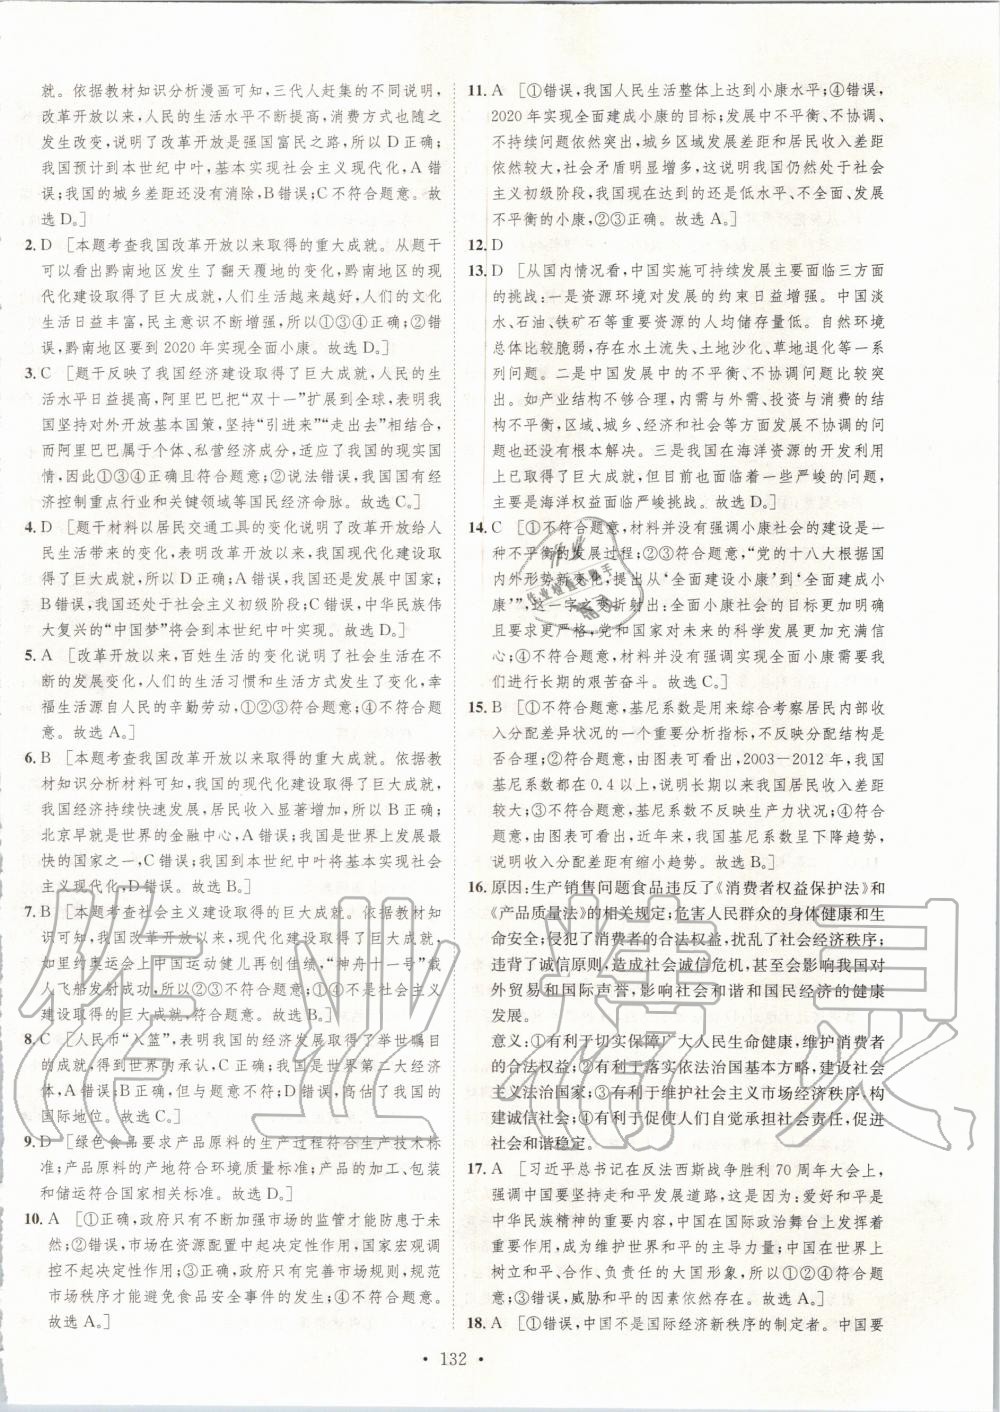 就。依据教材知识分析漫画可知，三代人赶集的不同说明，
改革开放以来，人民的生活水平不断提高，消费方式也随之
发生改变，说明了改革开放是强国富民之路，所以 D 正确；
我国预计到本世纪中叶，基本实现社会主义现代化，A 错
误；我国的城乡差距还没有消除，B 错误；C 不符合题意。故
选 D。]
2. D [本题考查我国改革开放以来取得的重大成就。从题干
可以看出黔南地区发生了翻天覆地的变化，黔南地区的现
代化建设取得了巨大成就，人们生活越来越好，人们的文化
生活日益丰富，民主意识不断增强，所以①③④正确；②错
误，黔南地区要到 2020 年实现全面小康。故选 D。]
3. C [题干反映了我国经济建设取得了巨大成就，人民的生
活水平日益提高，阿里巴巴把“双十一”扩展到全球，表明我
国坚持对外开放基本国策，坚持“引进来”“走出去”相结合，
而阿里巴巴属于个体、私营经济成分，适应了我国的现实国
情，因此①③④正确且符合题意；②说法错误，我国国有经
济控制重点行业和关键领域等国民经济命脉。故选 C。]
4. D [题干材料以居民交通工具的变化说明了改革开放给人
民生活带来的变化，表明改革开放以来，我国经济快速发
展，人民生活水平提高，所以 D 正确；A 错误，我国还是发展中国家；
B 错误，我国还处于社会主义初级阶段；C 错误，中华民族伟
大复兴的“中国梦”将会到本世纪中叶实现。故选 D。]
5. A [改革开放以来，百姓生活的变化说明了社会生活在不断
的发展变化，人们的生活习惯和生活方式发生了变化，幸
福生活源自人民的辛勤劳动，①②③符合题意；④不符合
题意。故选 A。]
6. B [本题考查我国改革开放以来取得的重大成就。依据教
材知识分析材料可知，我国的现代化建设取得了巨大成就，
我国经济持续快速发展，居民收入显著增加，所以 B 正确；
北京早就是世界的金融中心，A 错误；我国是世界上发展最
快的国家之一，C 错误；我国到本世纪中叶将基本实现社会
主义现代化，D 错误。故选 B。]
7. B [本题考查社会主义建设取得的巨大成就。依据教材知
识可知，我国改革开放以来，现代化建设取得了巨大成就，
如里约奥运会上中国运动健儿再创佳绩，“神舟十一号”载
人飞船发射成功，所以②③不符合题意；①④不是社会主义
建设的巨大成就，符合题意。故选 B。]
8. C [人民币“入篮”，表明我国的经济发展取得了举世瞩目
的成就，得到了世界的承认，C 正确；我国是世界第二大经济
体，A 错误；B 正确，但与题意不符合；D 错误，高估了我国的
国际地位。故选 C。]
9. D [绿色食品要求产品原料的生产过程符合生产技术标
准；产品原料的产地符合环境质量标准；产品的加工、包装
和储运符合国家相关标准。故选 D。]
10. A [①正确，政府只有不断加强市场的监管才能防患于未
然；②错误，市场在资源配置中起决定性作用，国家宏观调
控不起决定性作用；③正确，政府只有完善市场规则，规范
市场秩序才能避免食品安全事件的发生；④不符合题意。
故选 A。]
11. A [①错误，我国人民生活整体上达到小康水平；④错误，
2020 年实现全面建成小康的目标；发展中不平衡、不协调、
不持续问题依然突出，城乡区域发展差距和居民收入差距
依然较大，社会矛盾明显增多，这说明我国仍然处于社会
主义初级阶段，我国现在达到的还是低水平、不全面、发展
不平衡的小康，②③正确。故选 A。]
12. D
13. D [从国内情况看，中国实施可持续发展主要面临三方面
的挑战：一是资源环境对发展的约束日益增强。中国淡
水、石油、铁矿石等重要资源的人均储存量低。自然环境
总体比较脆弱，存在水土流失、土地沙化、草地退化等一系
列问题。二是中国发展中的不平衡、不协调问题比较突
出。如产业结构不够合理，内需与外需、投资与消费的结
构不平衡，区域、城乡、经济和社会等方面发展不协调的问
题也没有根本解决。三是我国在海洋资源的开发利用
上已取得了巨大成就，但目前面临着一些严峻的问题，
主要是海洋权益面临严峻挑战。故选 D。]
14. C [①不符合题意，材料并没有强调小康社会的建设是一
种不平衡的发展过程；②③符合题意，“党的十八大根据国
内外形势新变化，提出从‘全面建设小康’到‘全面建成小
康’”，这一字之变折射出：全面建成小康的目标更加明确
且要求更严格，党和国家对未来的科学发展更加充满信
心；④不符合题意，材料并没有强调实现全面小康需要我
们进行长期的艰苦奋斗。故选 C。]
15. B [①不符合题意，基尼系数是用来综合考察居民内部收
入分配差异状况的一个重要分析指标，不反映分配结构是
否合理；②符合题意，由图表可以看出，2003—2012 年，我
国基尼系数都在 0.4 以上，说明长期以来我国居民收入差距
较大；③不符合题意，基尼系数不反映生产力状况；④符合
题意，由图表可以看出，近年来，我国基尼系数呈下降趋势，
说明收入分配差距有缩小趋势。故选 B。]
16. 原因：生产销售问题食品违反了《消费者权益保护法》和
《产品质量法》的相关规定；危害人民群众的身体健康和生
命安全；侵犯了消费者的合法权益，扰乱了社会经济秩序；
违背了诚信原则，造成社会诚信危机，甚至会影响我国对
外贸易和国际声誉，影响社会和谐和国民经济的健康
发展。
意义：①有利于切实保障广大人民生命健康，维护消费者
的合法权益；②有利于落实依法治国基本方略，建设社会
主义法治国家；③有利于维护社会主义市场经济秩序，构
建诚信社会；④有利于促使人们自觉承担社会责任，促进
社会和谐稳定。
17. A [习近平总书记在反法西斯战争胜利 70 周年大会上，
强调中国要坚持走和平发展道路，这是因为：爱好和平是
中华民族精神的重要内涵，中国在国际政治舞台上发挥着
越来越重要的作用，成为维护世界和平的主导力量；中国在世界上
树立和平、合作、负责任的大国形象，所以①②④符合题
意；③错误，威胁和平的因素依然存在。故选 A。]
18. A [①错误，中国不是国际经济新秩序的制定者。中国要
· 132 ·
作业精灵